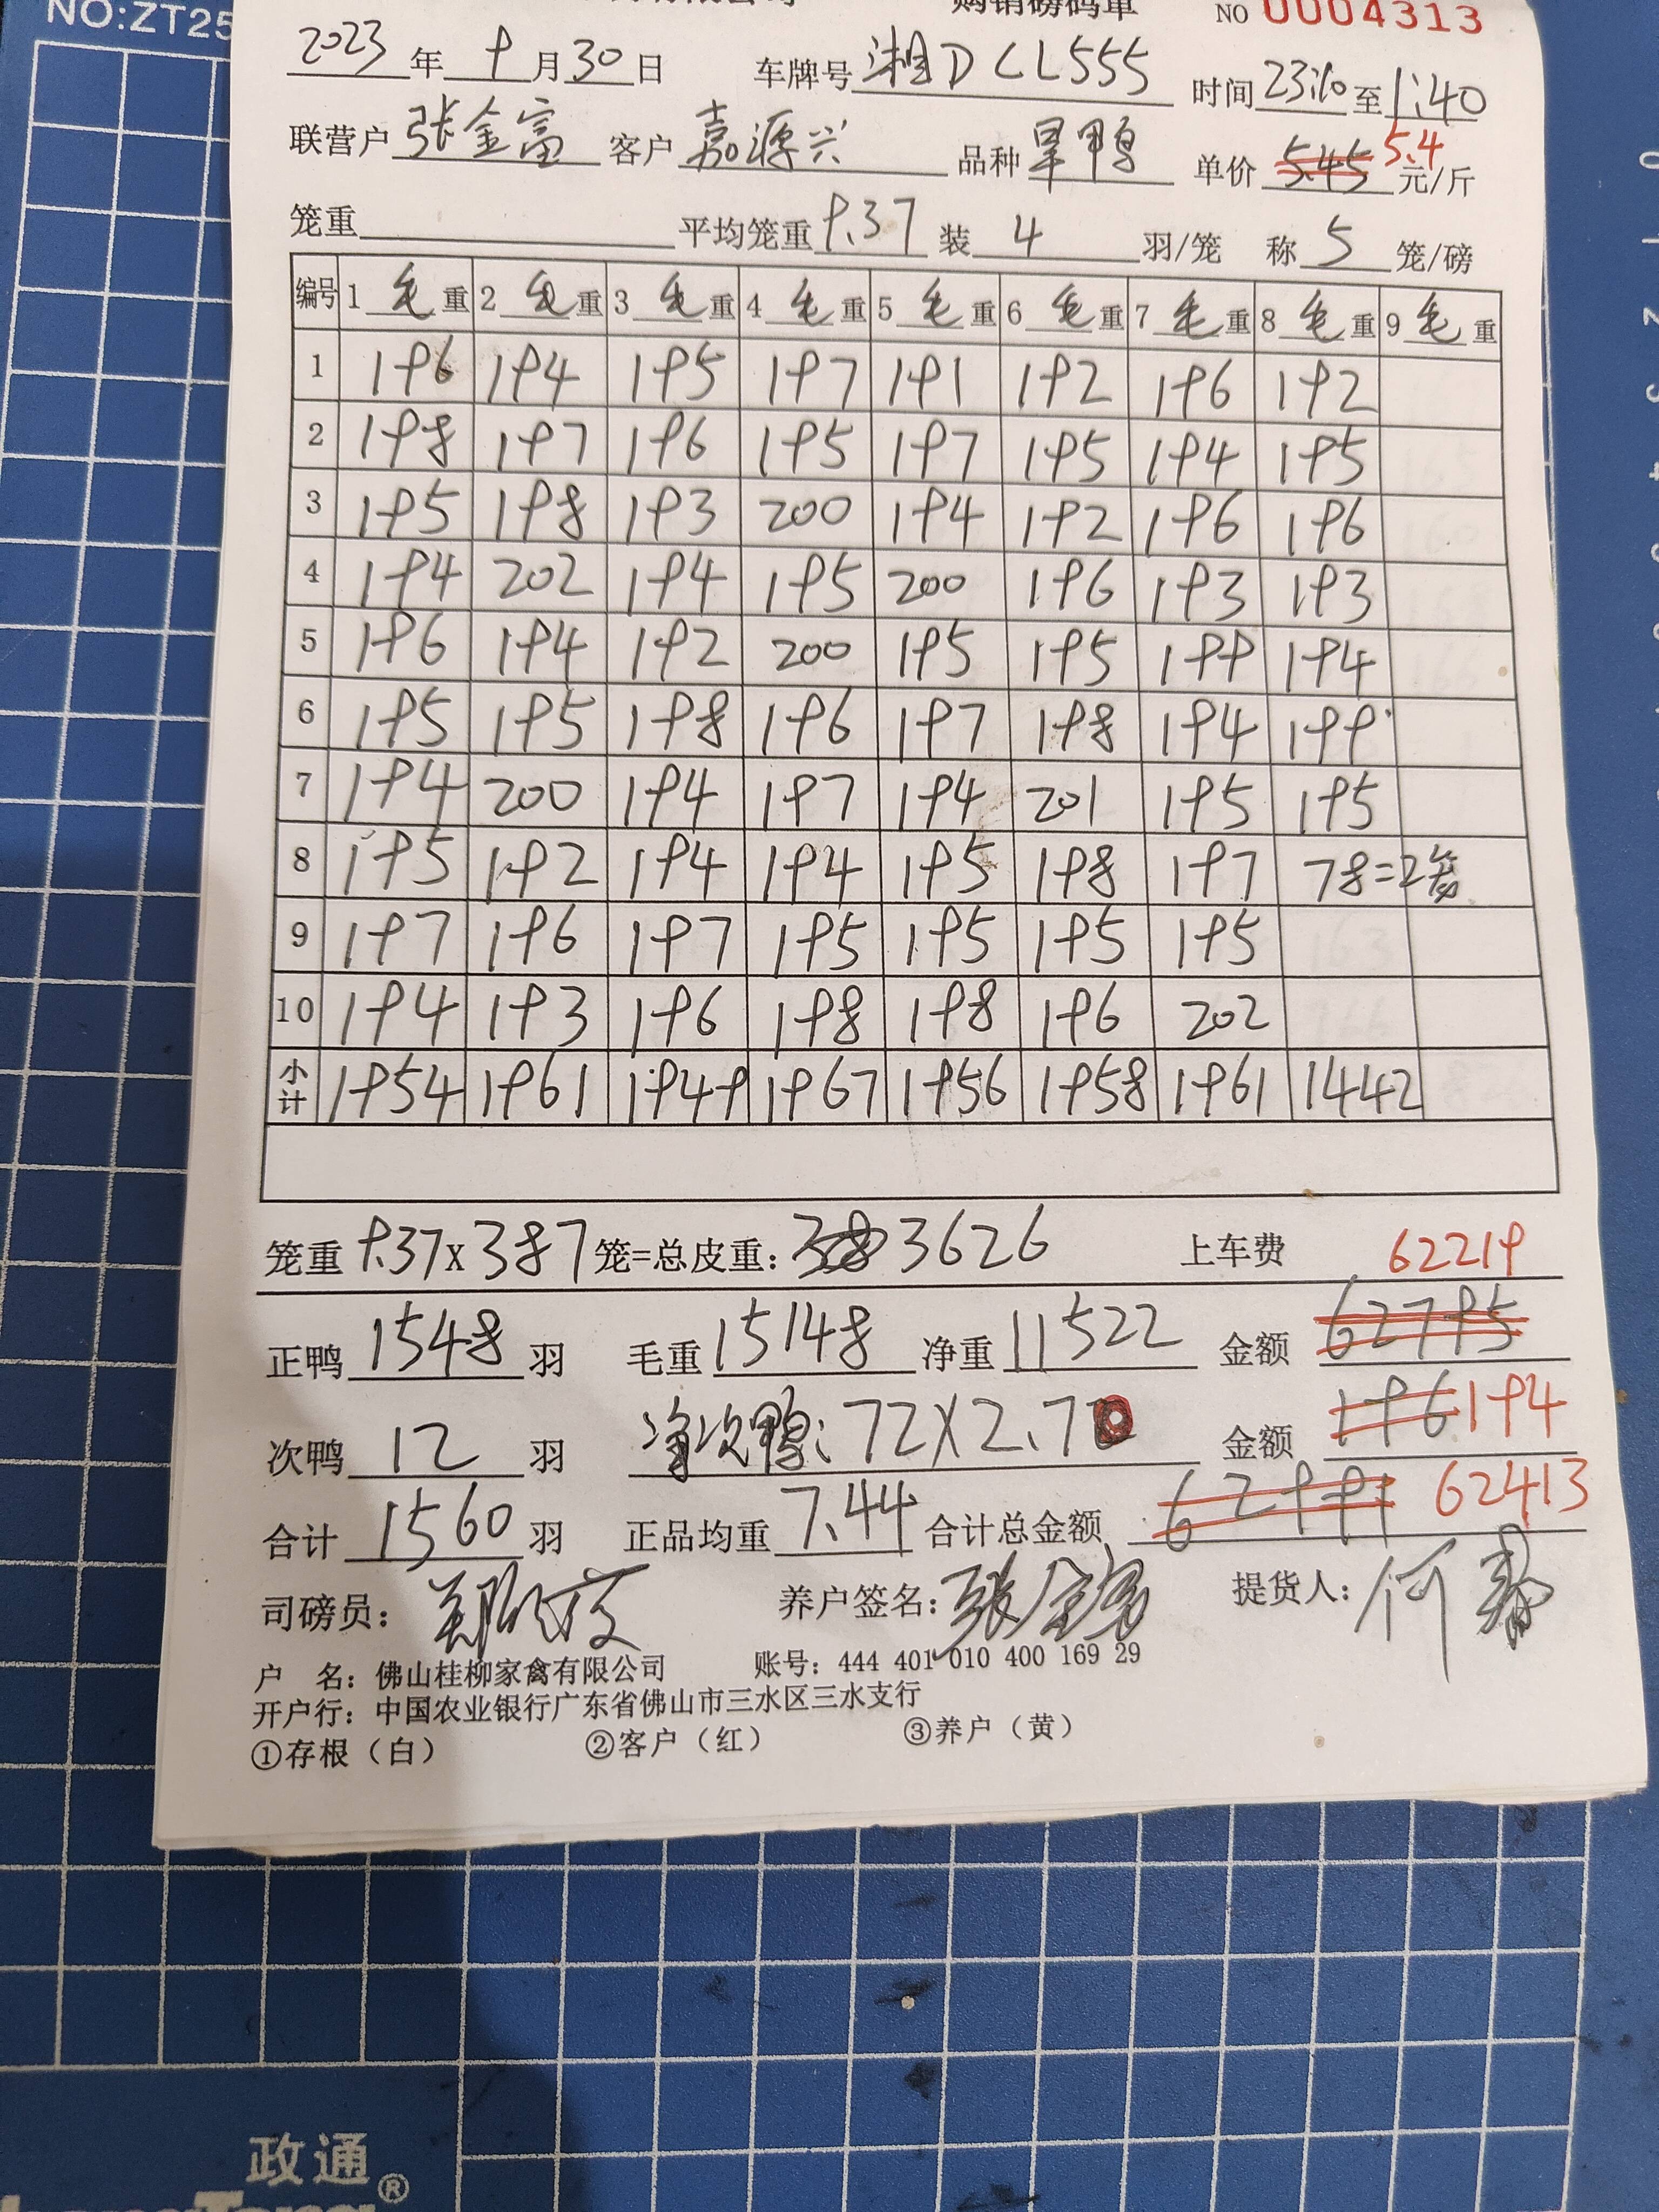 NO:ZT25
购销磅码单 NO 0004313
2023 年 9 月 30 日 车牌号 湘D CL555 时间 23:10 至 1:40
联营户 张金富 客户 嘉源兴 品种 旱鸭 单价 5.45 5.4 元/斤
笼重 平均笼重 9.37 装 4 羽/笼 称 5 笼/磅
编号 1 毛 重 2 毛 重 3 毛 重 4 毛 重 5 毛 重 6 毛 重 7 毛 重 8 毛 重 9 毛 重
1 196 194 195 197 191 192 196 192
2 198 197 196 195 197 195 194 195
3 195 198 193 200 194 192 196 196
4 194 202 194 195 200 196 193 193
5 196 194 192 200 195 195 199 194
6 195 195 198 196 197 198 194 199
7 194 200 194 197 194 201 195 195
8 195 192 194 194 195 198 197 78=2笼
9 197 196 197 195 195 195 195
10 194 193 196 198 198 196 202
小计 1954 1961 1949 1967 1956 1958 1961 1442
笼重 9.37 x 387 笼=总皮重: 3626 上车费 62219
正鸭 1548 羽 毛重 15148 净重 11522 金额 62795
次鸭 12 羽 净次鸭: 72X2.7 金额 196 194
合计 1560 羽 正品均重 7.44 合计总金额 62991 62413
司磅员: 养户签名: 张金富 提货人: 何
户 名: 佛山桂柳家禽有限公司 账号: 444 401 010 400 169 29
开户行: 中国农业银行广东省佛山市三水区三水支行
①存根（白） ②客户（红） ③养户（黄）
政通®